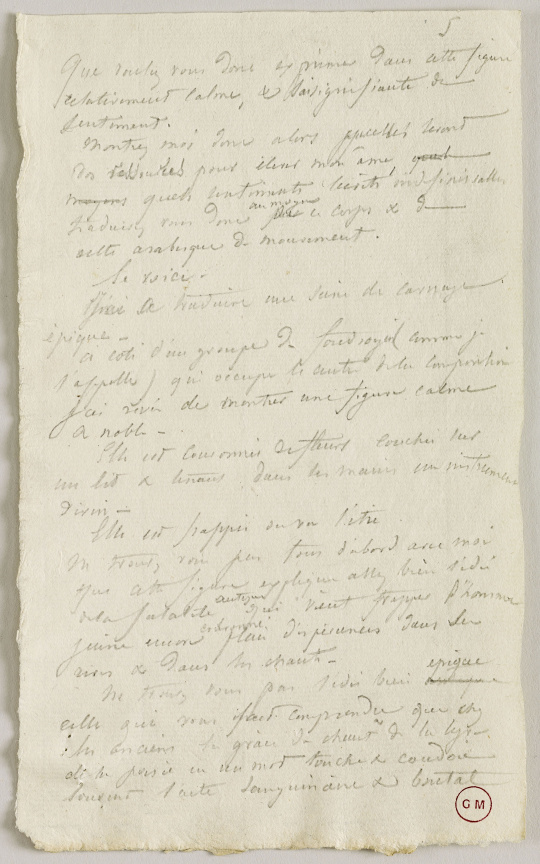 5
Que voulez vous donc exprimer dans cette figure
relativement calme, & insignifiante de
sentiment.
Montrez moi donc alors quelles seront
vos pour élever mon âme,
quels sentiments
traduisez vous donc au moyen de ce corps & de
cette arabesque de mouvement.
Le voici.
J'ai à traduire une scène de carnage
épique.
à côté d'un groupe de foudroyés (comme je
l'appelle) qui occupe le centre de la composition
j'ai rêvé de montrer une figure calme
& noble.
Elle est couronnée de fleurs couchée sur
un lit & tenant dans les mains un instrument
divin.
Elle est frappée ou va l'être.
Ne trouvez vous pas tous d'abord avec moi
que cette figure explique assez bien l'idée
de la fatalité antique qui vient frapper l'homme
jeune encore plein d'espérances dans les
ris & dans les chants.
Ne trouvez vous pas l'idée bien épique
celle qui vous fait comprendre que chez
les anciens la grâce du chant de la lyre
de la poésie en un mot touche & coudoie
souvent l'acte sanguinaire & brutal
GM